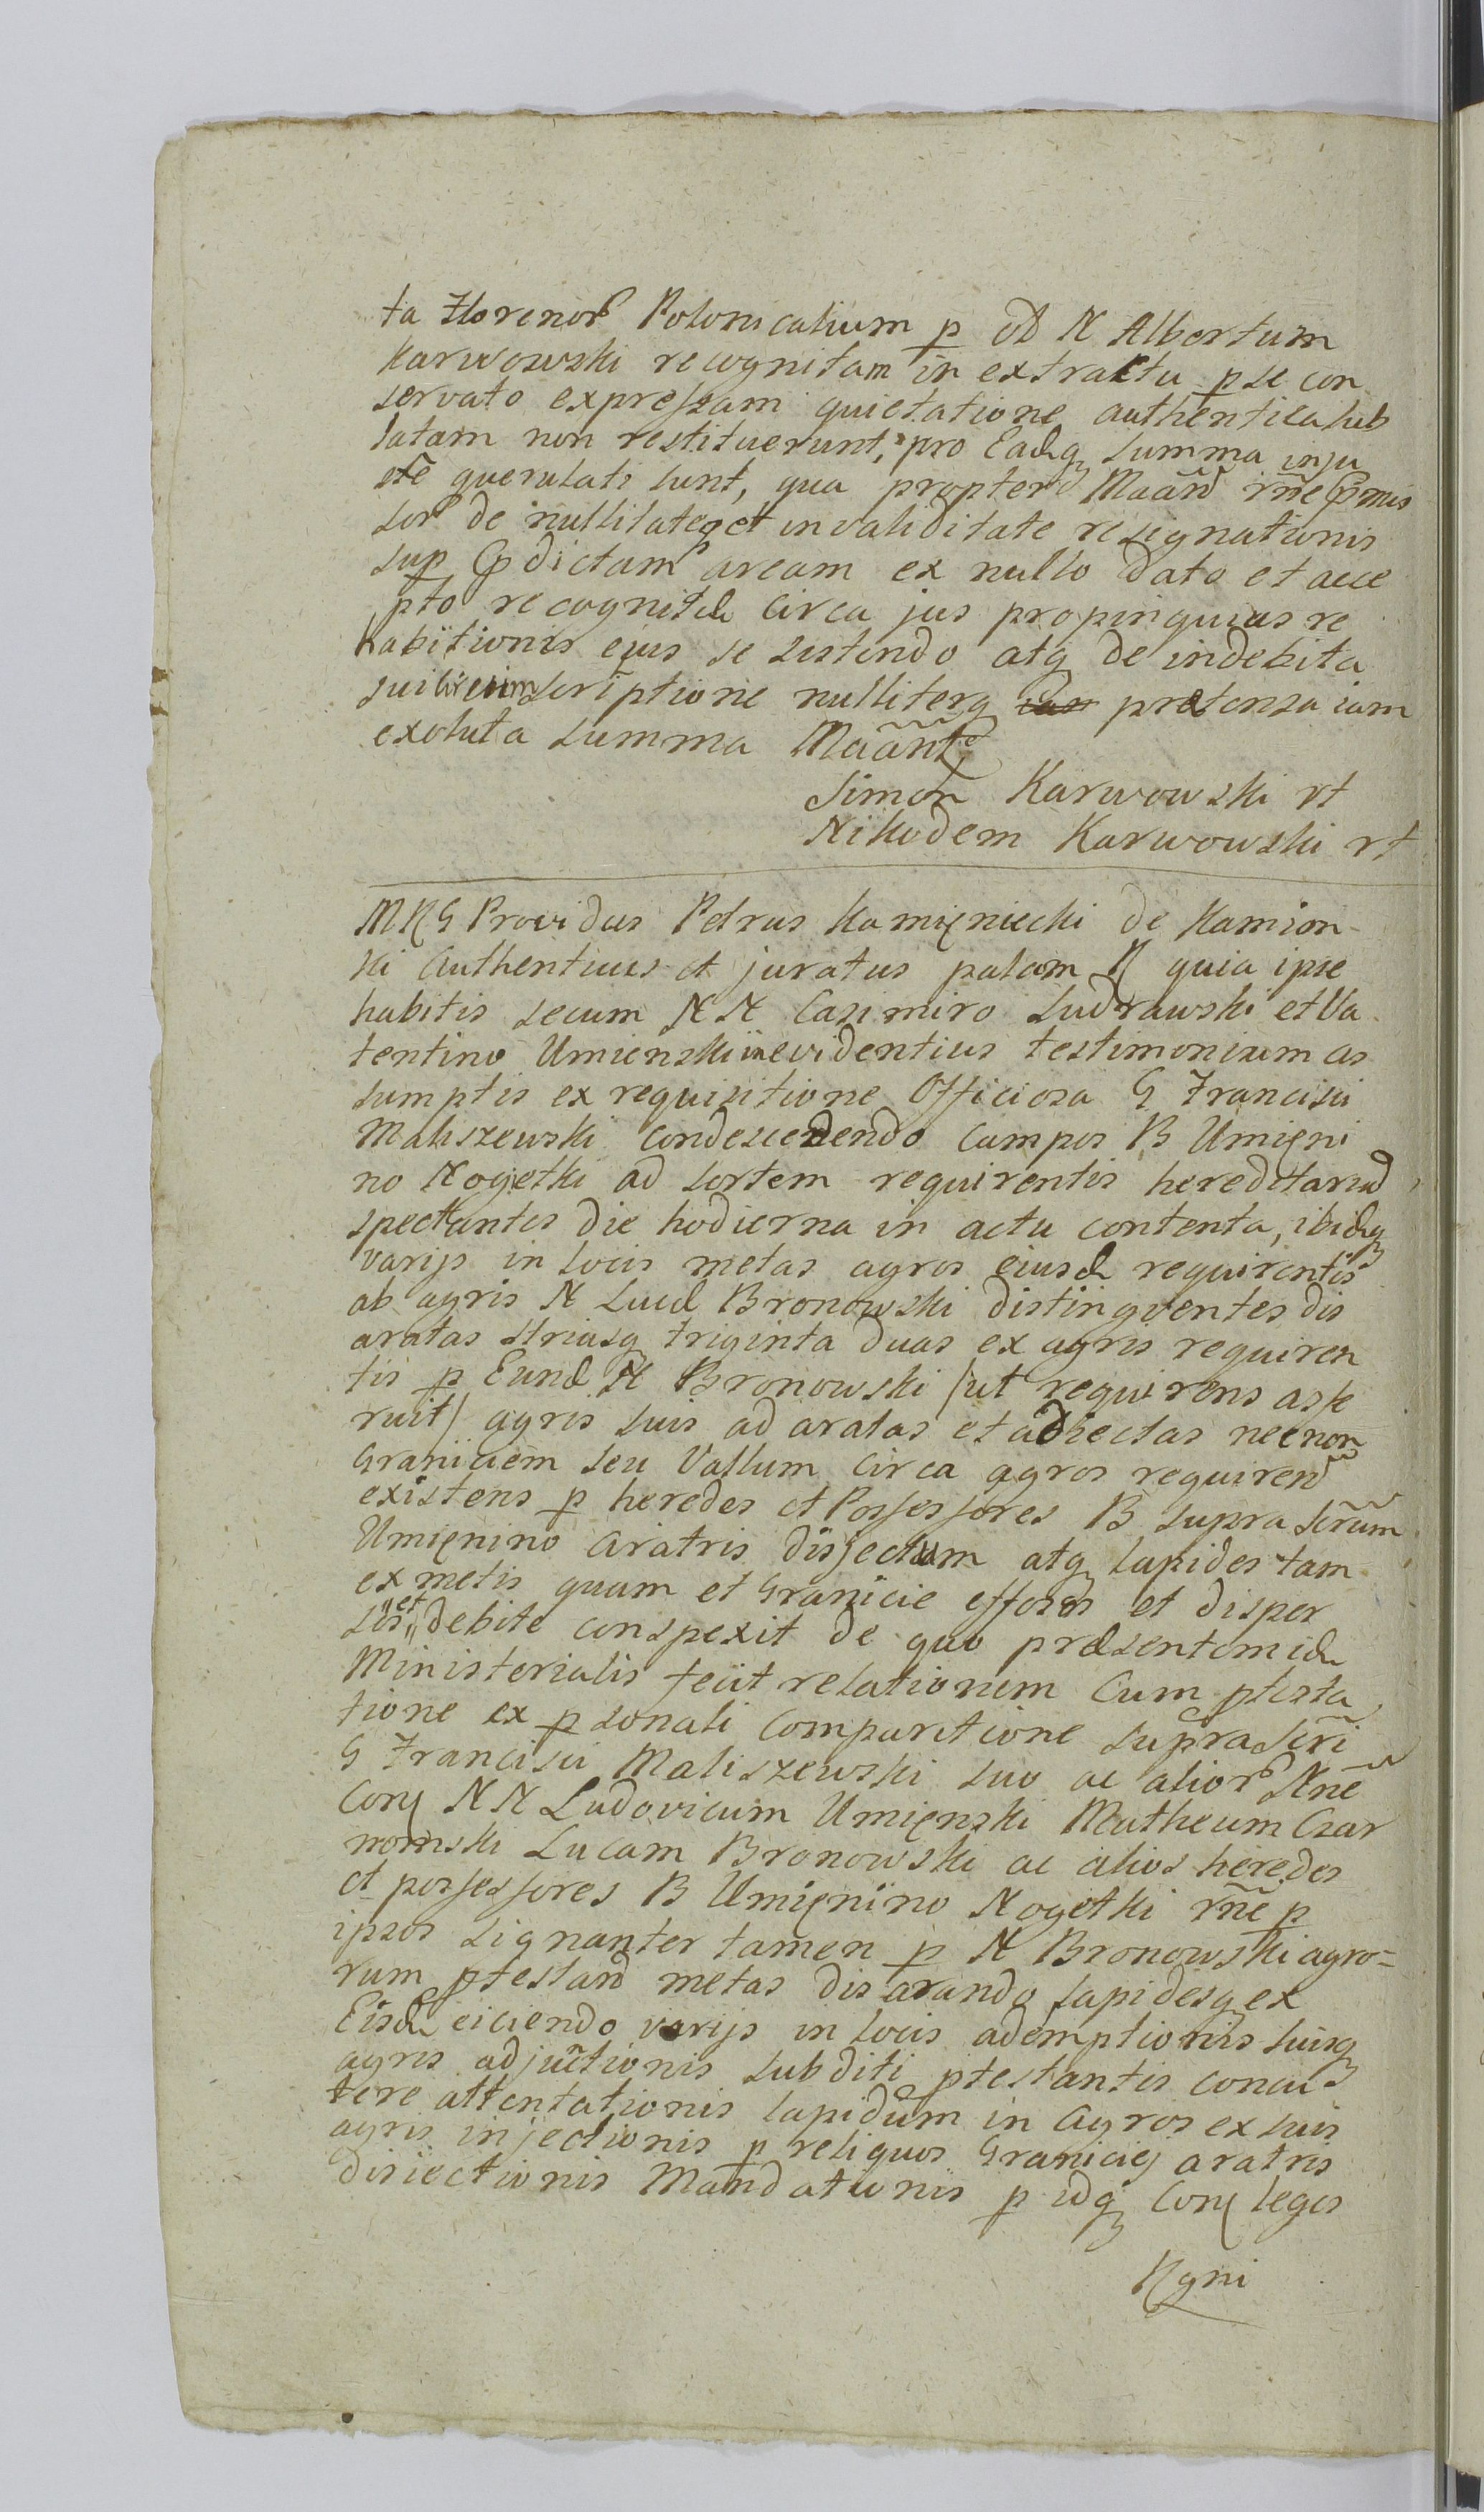 ta Florenor Polonicalium p od N Albertum
Karwowski recognitam in extractu p se con
servato expressam quietatione authentica sub
latam non restituerunt, pro Eadq summa inju
ste querulati sunt, qua propter Maand rne pmis
sor de nullitateq et invaliditate resignationis
sup pdictam aream ex nullo dato et acce
pto recognitae circa jus propinquius re
habitionis ejus se sistendo atq de indebita
sui inscriptione nulliterq pretensa iam
exoluta summa Maant
Simon Karwowski rt
Nikodem Karwowski rt
MRG Providus Petrus Kamięniecki de Kamion-
ki Authenticus et juratus palam R quia ipse
habitis secum NN Casimiro Sudrawski et Va
lentino Umienski in evidentius testimonium as
sumptis ex requisitione Officiosa G Francisci
Maliszewski condescendendo campos B Umięni
no Nogetki ad sortem requirentis hereditariad
spectantes die hodierna in actu contenta, ibidq
varijs in locis metas agros eiusd requirentis
ab agris N Lucd Bronowski distingventes dis
aratas striasq triginta duas ex agris requiren
tis p Eund N Bronowski /ut requirens asse
ruit/ agris suis ad aratas et adiectas necnon
Graniciem seu Vallum circa agros requiren
existens p heredes et Possessores B supra scrum
Umięnino aratris disjectum atq lapides tam
ex metis quam et Granicie effosos et disper
sos et debite conspexit de quo presentem id
Ministerialis fecit relationem Cum ptesta
tione ex p sonali comparitione supra scri
G Francisci Maliszewski suo ac alior Nne
Conq NN Ludovicum Umięnski Matheum Czar
nomski Lucam Bronowski ac alios heredes
et possessores B Umięnino Nogetki rne p
ipsos signanter tamen p N Bronowski agro=
rum ptestand metas disarando lapidesq ex
Eisd eiciendo varijs in locis ademptionis suisq
agris adjuctionis subditi ptestantis concu
tere attentationis lapidum in agros ex suis
agris injectionis p reliquos Graniciej aratris
disiectionis Mandationis p idq Conq leges
Rgni